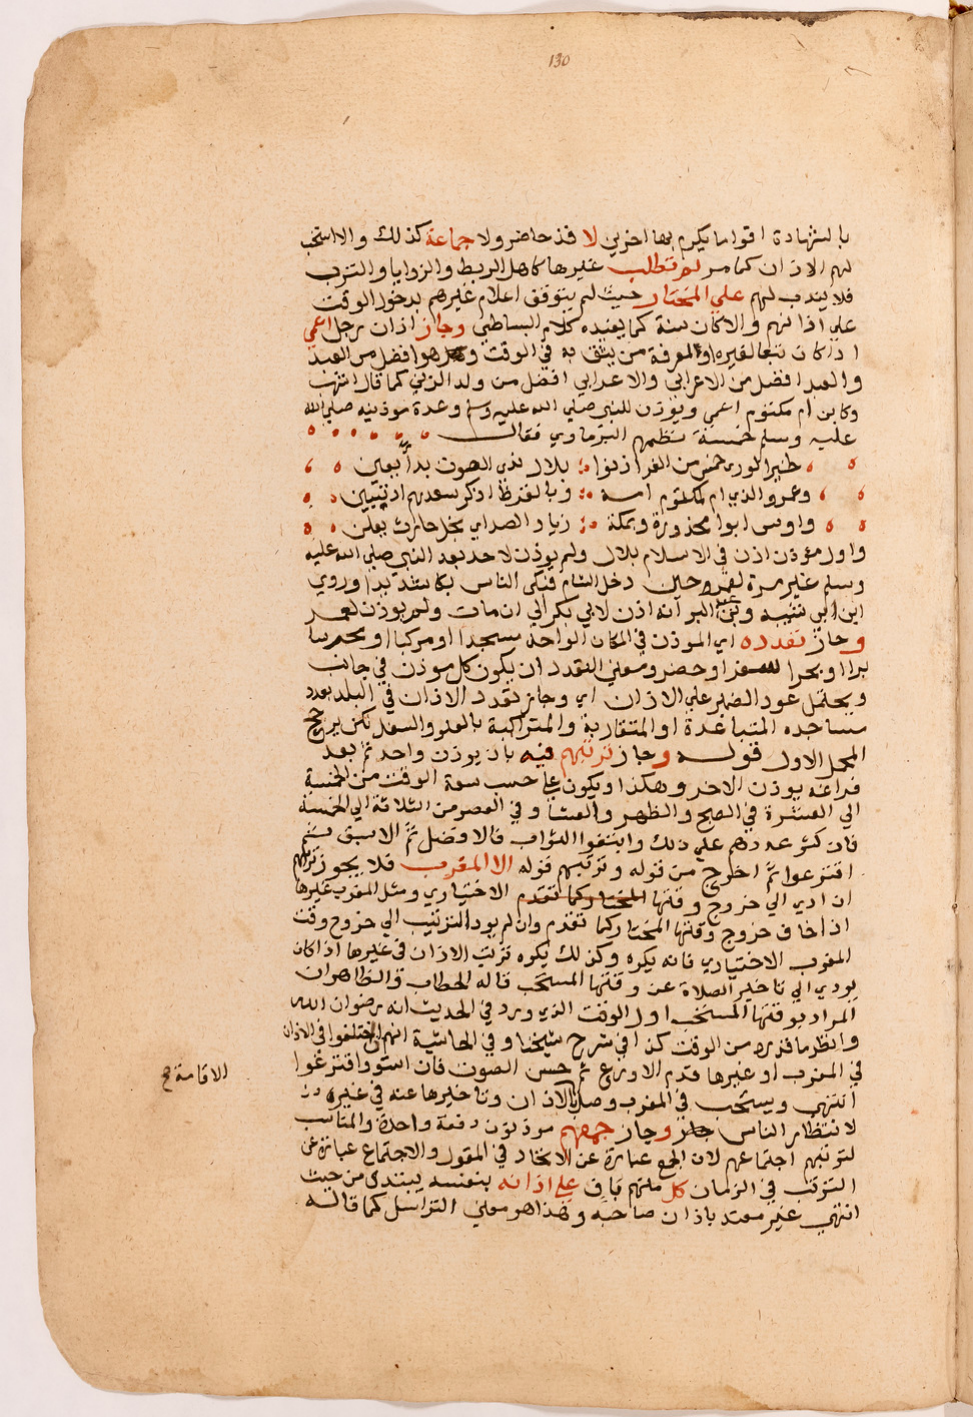 130
بالشهادة اقواما يكرم بها اخرين لا فذ حاضر ولا جماعة كذلك والا استحب
لهم الاذان كما مر لم تطلب غيرها كاهل الربط والزوايا والترب
فلا يندب لهم على المختار حيث لم يتوقف اعلام غيرهم بدخول الوقت
على اذانهم والا كان سنة كما يفيده كلام البساطي وجاز اذان رجل اعمى
اذا كان تبعا لغيره او لمعرفة من يثق به في الوقت وهو افضل من العبد
والعبد افضل من الاعرابي والاعرابي افضل من ولد الزنى كما قال اشهب
وكابن ام مكتوم اعمى ويؤذن للنبي صلى الله عليه وسلم وعدة موذنيه صلى الله
عليه وسلم خمسة نظمهم البرماوي فقال
لخير الورى خمس من الغر اذنوا بلال ندي الصوت بدأ يعين
وعمرو الذي ام لمكتوم امه وبالقرظ اذكر سعدهم اذ يبين
واوس ابوا محذورة وبمكة زياد الصداي نجل حارث يعلن
واول مؤذن اذن في الاسلام بلال ولم يوذن لاحد بعد النبي صلى الله عليه
وسلم غير مرة لعمر حين دخل الشام فبكى الناس بكا شديدا وروي
ابن ابي شيبه وبن عبد البر انه اذن لابي بكر الى ان مات ولم يوذن لعمر
وجاز تعدده اي الموذن في المكان الواحد مسجدا او مركبا او محرسا
برا او بحرا سفرا او حضر ومعنى التعدد ان يكون كل موذن في جانب
ويحتمل عود الضمير على الاذان اي وجاز تعدد الاذان في البلد بعدد
مساجده المتباعدة او المتقاربة والمتراكبة بالعلو والسفل لكن يرجح
المحل الاول قوله وجاز ترتبهم فيه بان يوذن واحد ثم بعد
فراغه يوذن الاخر وهكذا ويكون على حسب سعة الوقت من الخمسة
الى العشرة في الصبح والظهر والعشا وفي العصر من الثلاثة الى الخمسة
فان كثر عددهم على ذلك وابتغوا الثواب فالافضل ثم الاسبق ثم
اقترعوا ثم اخرج من قوله وترتبهم قوله الا المغرب فلا يجوز ترتبهم
ان ادي الى خروج وقتها المختار كما تقدم الاختياري ومثل المغرب غيرها
اذا خاف خروج وقتها المختار كما تقدم وان لم يود الترتيب الى خروج وقت
المغرب الاختياري فانه يكره وكذلك يكره ترتيب الاذان في غيرها اذا كان
يودي الى تاخير الصلاة عن وقتها المستحب قاله الحطاب والظاهر ان
المراد بوقتها المستحب اول الوقت الذي ورد في الحديث انه رضوان الله
وانظر ما قدره من الوقت كذا في شرح شيخنا وفي الحاشية انهم ان اختلفوا في الاذان
في المغرب او غيرها قدم الاورع ثم حسن الصوت فان استووا اقترعوا
انتهى ويستحب في المغرب وصل الاذان وتاخيرها عنه في غيره
الاقامة صح
لانتظار الناس وجاز جمعهم موذنون دفعة واحدة والمناسب
لترتبهم اجتماعهم لان الجمع عبارة عن الاتحاد في المقول والاجتماع عبارة عن
الترتب في الزمان كل منهم باق على اذانه بنفسه يبتدى من حيث
انتهى غير معتد باذان صاحبه وهذا هو معنى التراسل كما قاله